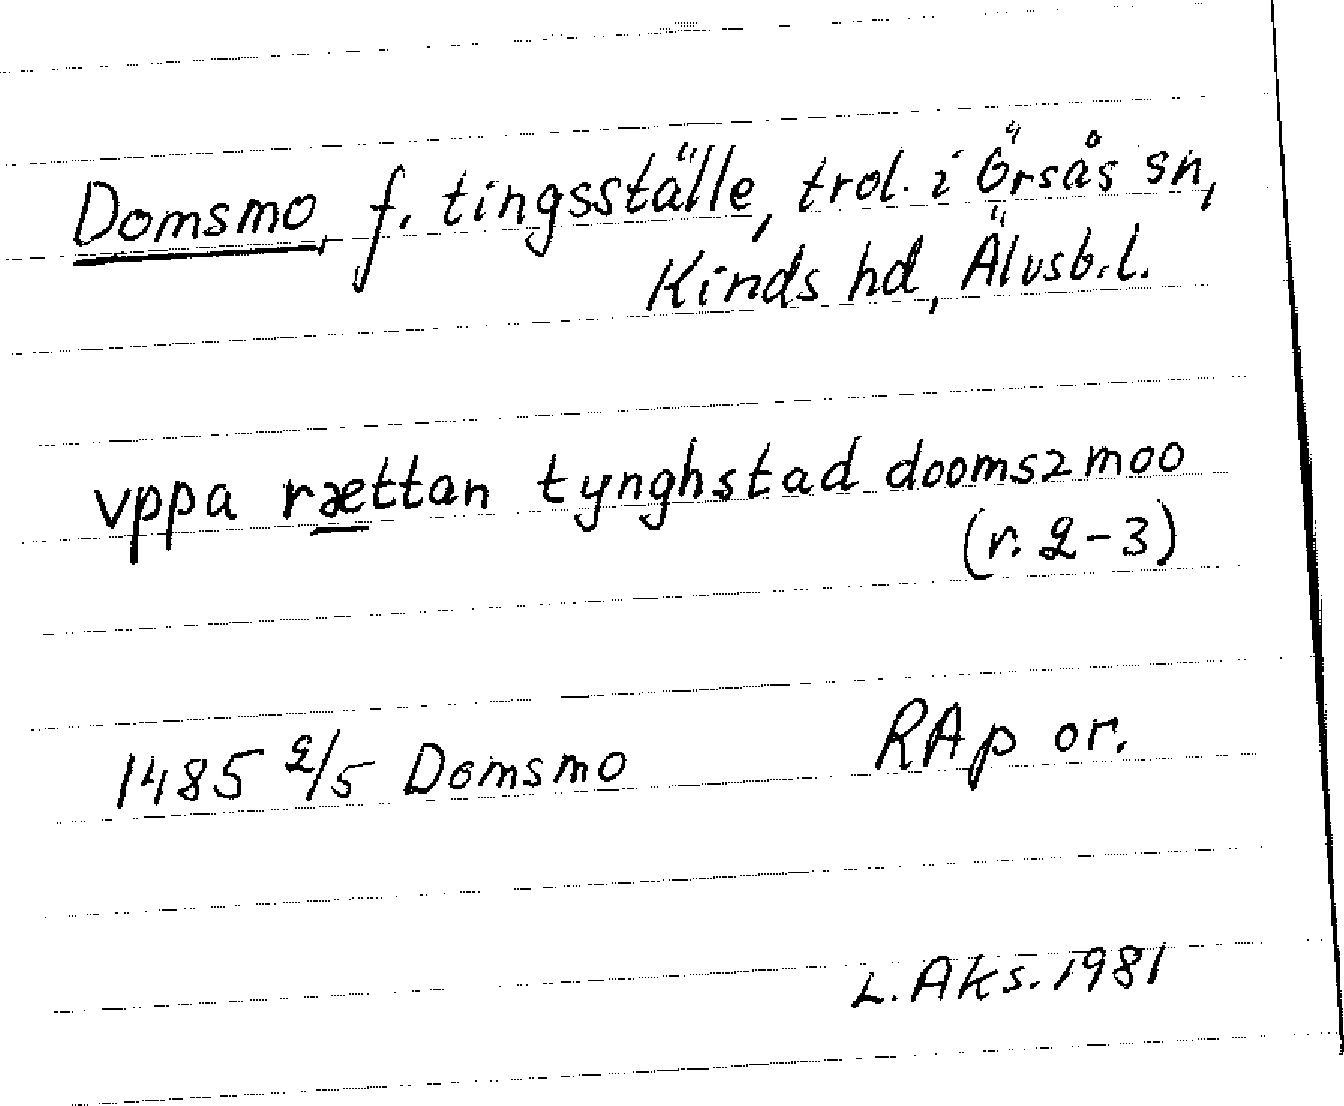 Domsmo, f. tingsställe, trol. i Örsås sn,
Kinds hd, Älvsb.l.
vppa rættan tynghstad doomszmoo
(r. 2-3)
1485 2/5 Domsmo RAp or.
L. Aks. 1981